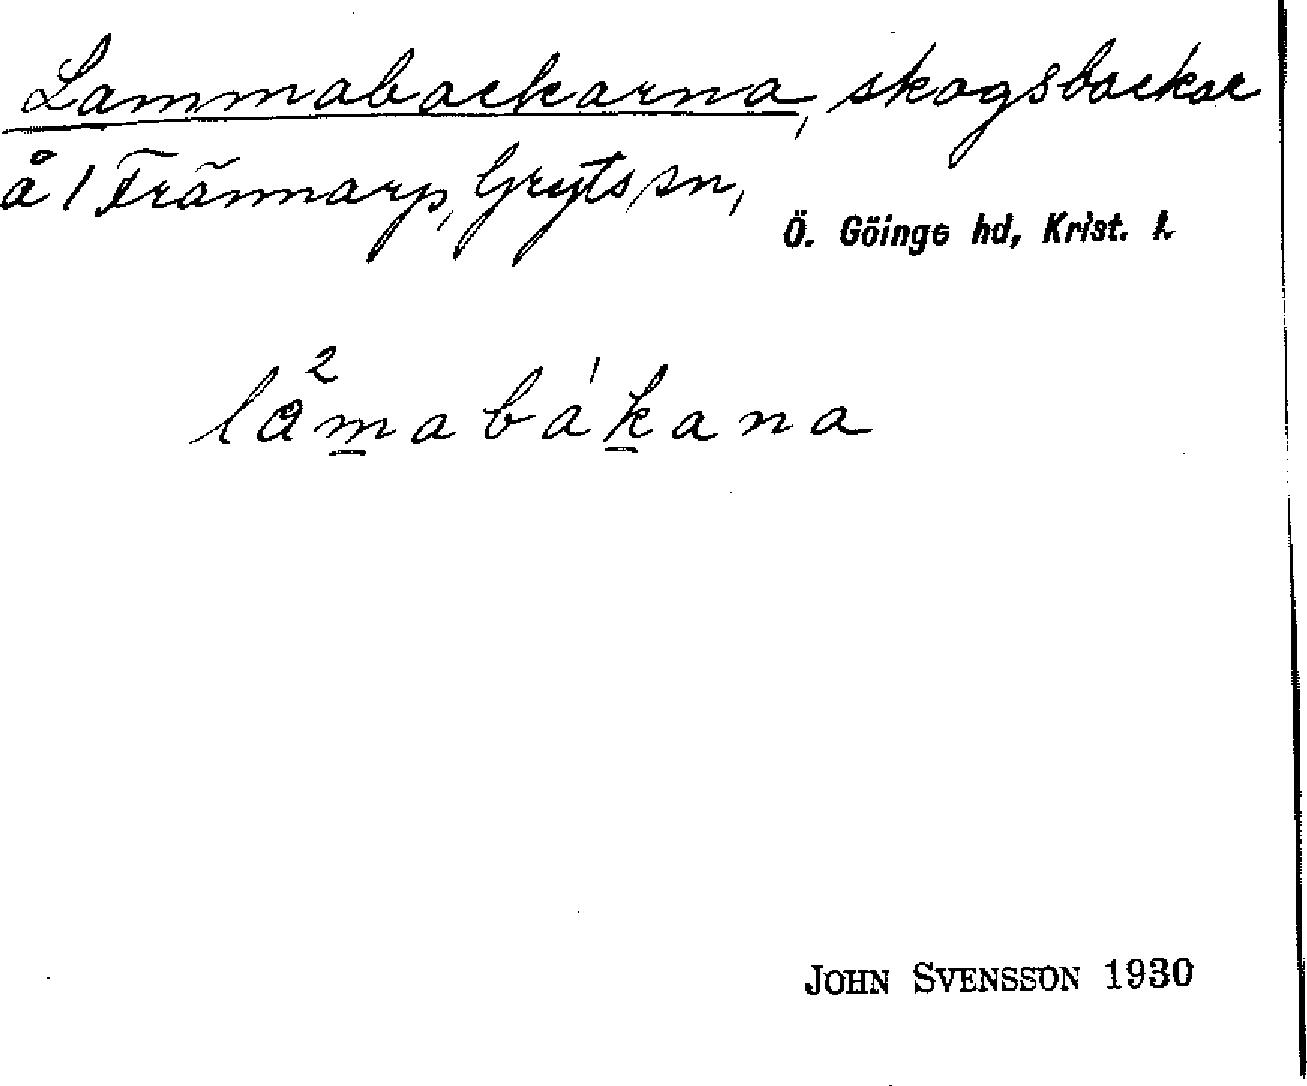 Lammabackarna, skogsbackar
å 1 Trännarp, Gryts sn,
Ö. Göinge hd, Krist. l.
2 1
lamabákana
JOHN SVENSSON 1930